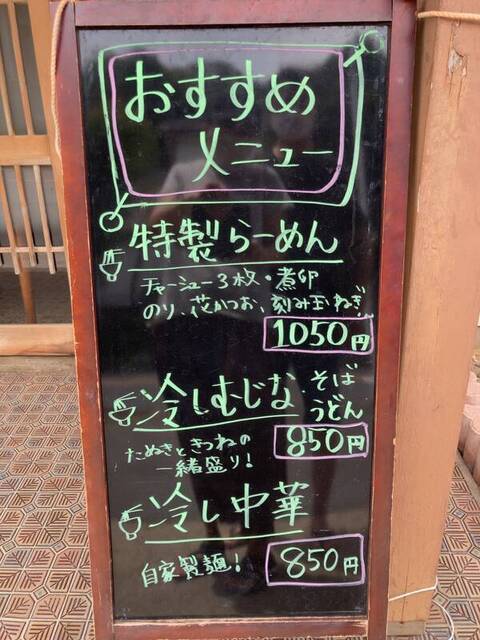 おすすめ
メニュー
特製らーめん
チャーシュー3枚・煮卵
のり、花かつお、刻み玉ねぎ
1050円
冷しむじな そば
うどん
たぬきときつねの
一緒盛り!
850円
冷し中華
自家製麺!
850円